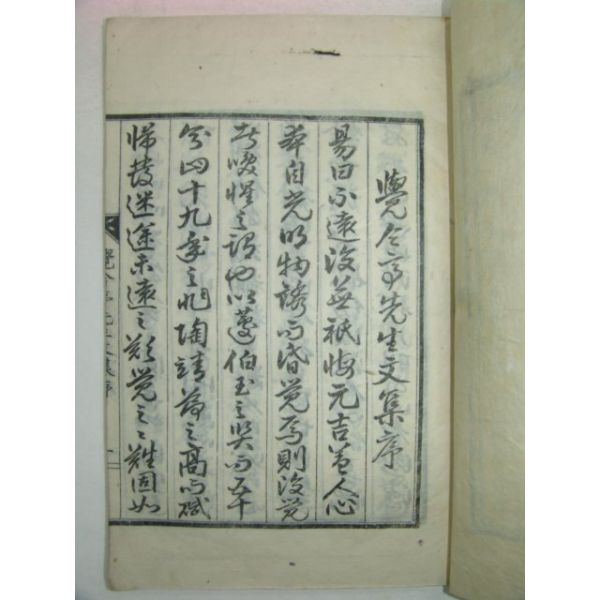 覺今亭先生文集序
易曰不遠復無祗悔元吉蓋人心
本自光明物誘而昏覺焉則復覺
者喚惺之謂也以蘧伯玉之賢而五十
知四十九年之非陶靖節之高而賦
歸發迷途未遠之歎覺之之難固如
覺今亭先生文集序